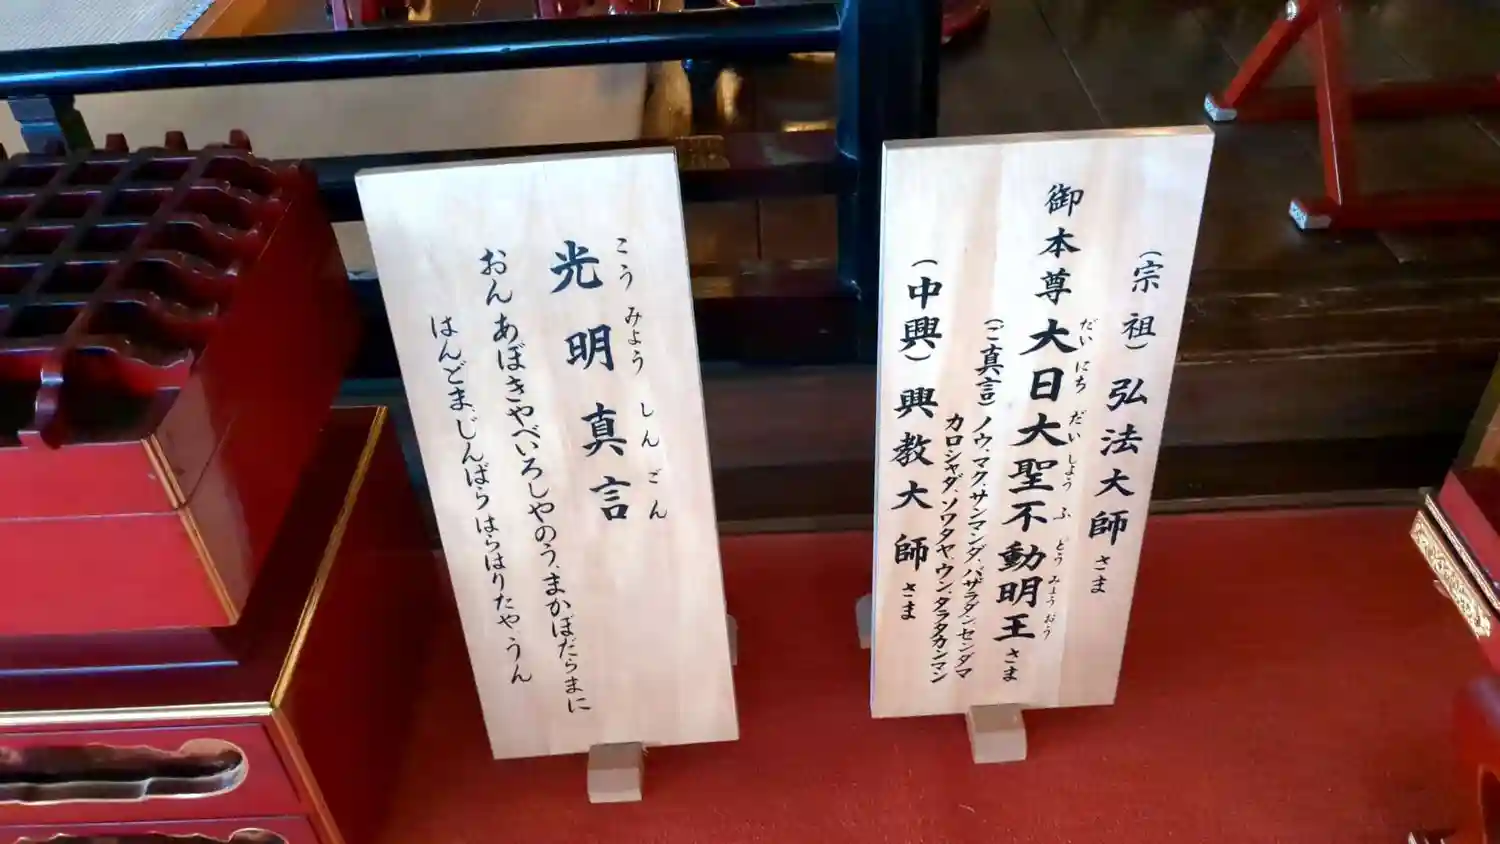 光明真言
こうみょうしんごん
おんあぼきやべいろしやのう、まかぼだらまに
はんどま、じんばらはらはりたや、うん
(宗祖)弘法大師さま
御本尊大日大聖不動明王さま
だいにちだいしょうふどうみょうおう
(ご真言)ノウ、マク、サンマンダ、バザラダンセンダマ
カロシャダ、ソワタヤ、ウン、タラタカンマン
(中興)興教大師さま